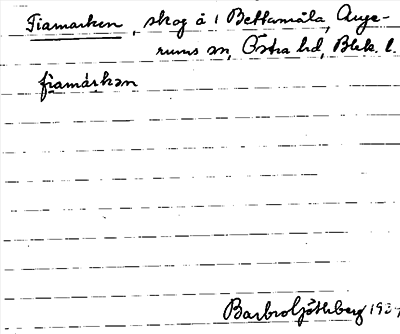 Fiamarken, skog å 1 Bettamåla, Auge-
rums sn, Östra hd, Blek. l.
fiamárkən
Barbro Göthberg 193